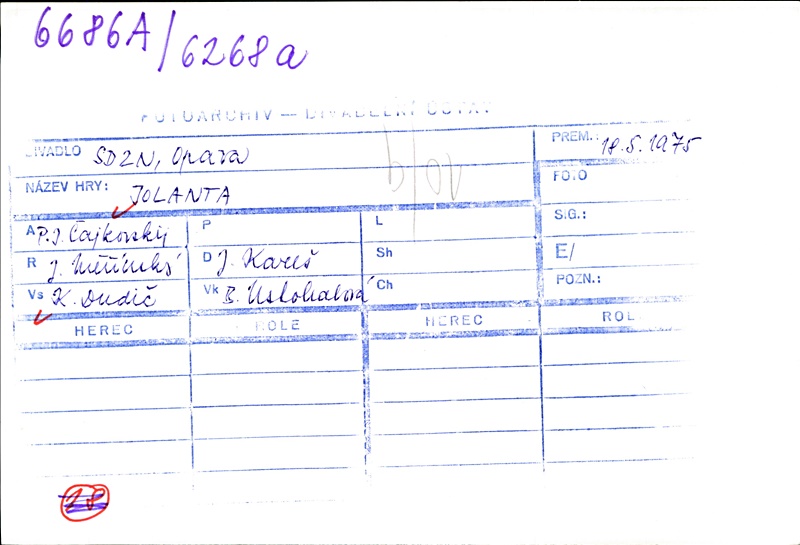 6686A/6268a
FOTOARCHIV — DIVADELNÍ ÚSTAV
DIVADLO SDZN, Opava
PREM.: 18.5.1975
NÁZEV HRY: JOLANTA
FOTO
A P.J. Čajkovskij P L
SIG.:
R J. D J. Kareš Sh
E/
Vs K. Dudič Vk B. Ch
POZN.:
HEREC ROLE HEREC ROLE
28